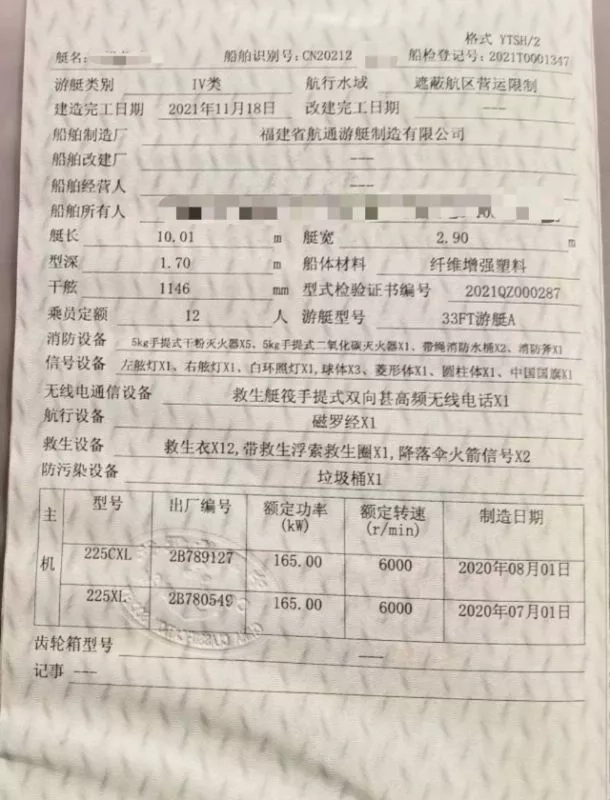 格式 YTSH/2
艇名: 船舶识别号:CN20212 船检登记号:2021T0001347
游艇类别 IV类 航行水域 遮蔽航区营运限制
建造完工日期 2021年11月18日 改建完工日期 ---
船舶制造厂 福建省航通游艇制造有限公司
船舶改建厂 ---
船舶经营人
船舶所有人
艇长 10.01 m 艇宽 2.90 m
型深 1.70 m 船体材料 纤维增强塑料
干舷 1146 mm 型式检验证书编号 2021QZ000287
乘员定额 12 人 游艇型号 33FT游艇A
消防设备 5kg手提式干粉灭火器X5、5kg手提式二氧化碳灭火器X1、带绳消防水桶X2、消防斧X1
信号设备 左舷灯X1、右舷灯X1、白环照灯X1,球体X3、菱形体X1、圆柱体X1、中国国旗X1
无线电通信设备 救生艇筏手提式双向甚高频无线电话X1
航行设备 磁罗经X1
救生设备 救生衣X12,带救生浮索救生圈X1,降落伞火箭信号X2
防污染设备 垃圾桶X1
主机 型号 出厂编号 额定功率(kW) 额定转速(r/min) 制造日期
225CXL 2B789127 165.00 6000 2020年08月01日
225XL 2B780549 165.00 6000 2020年07月01日
齿轮箱型号 ---
记事 ---